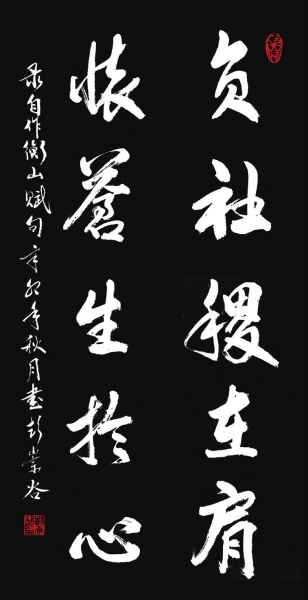 负社稷在肩
怀苍生於心
录自作衡山赋句辛卯年秋月书彭崇谷